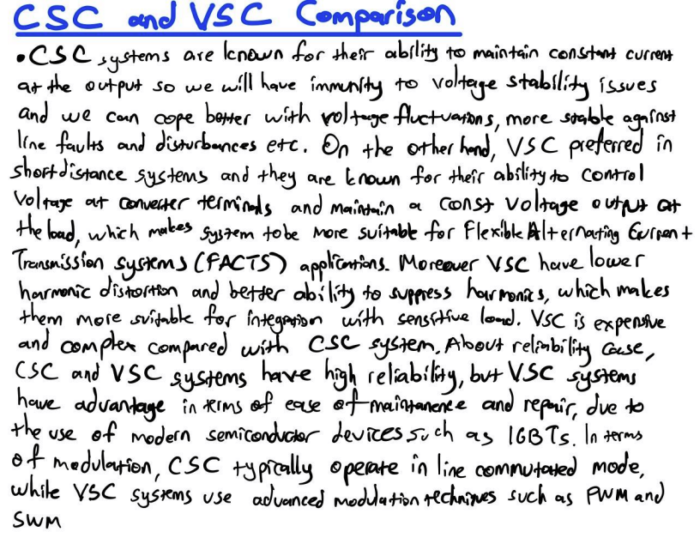 CSC and VSC Comparison
•CSC systems are known for their ability to maintain constant current
at the output so we will have immunity to voltage stability issues
and we can cope better with voltage fluctuations, more stable against
line faults and disturbances etc. On the other hand, VSC preferred in
short distance systems and they are known for their ability to control
Voltage at converter terminals and maintain a const voltage output at
the load, which makes system to be more suitable for Flexible Alternating Current
Transmission Systems (FACTS) applications. Moreover VSC have lower
harmonic distortion and better ability to suppress harmonics, which makes
them more suitable for integration with sensitive load. VSC is expensive
and complex compared with CSC system. About reliability case,
CSC and VSC systems have high reliability, but VSC systems
have advantage in terms of ease of maintanence and repair, due to
the use of modern semiconductor devices such as IGBTs. In terms
of modulation, CSC typically operate in line commutated mode,
while VSC systems use advanced modulation techniques such as PWM and
SWM